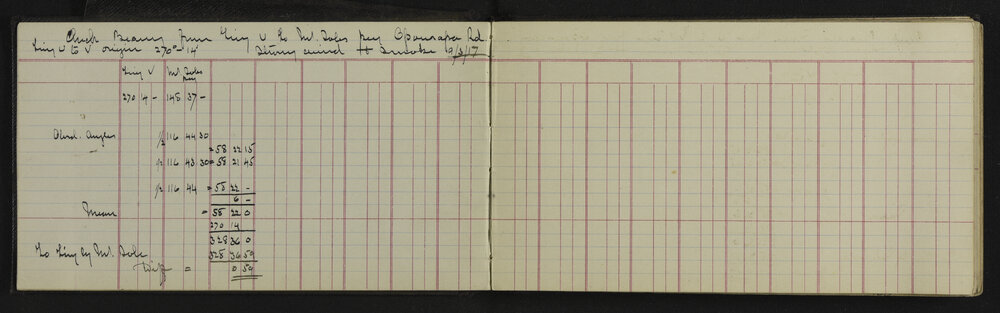 Check Bearing from Trig U to Mt. Zobes peg Opouraoa Rd.
Trig U to V origin 270° 14' Strong wind & Smoke 9/2/17
Trig V Mt Zobes peg
270 14 - 148 37 -
Obsd. Angles 1/2 116 44 30
= 58 22 15
1/2 116 43 30 = 58 21 45
1/2 116 44 = 58 22 -
6 -
Mean = 58 22 0
270 14
328 36 0
To Trig by Mt. Zobe 328 36 59
Diff = 0 59